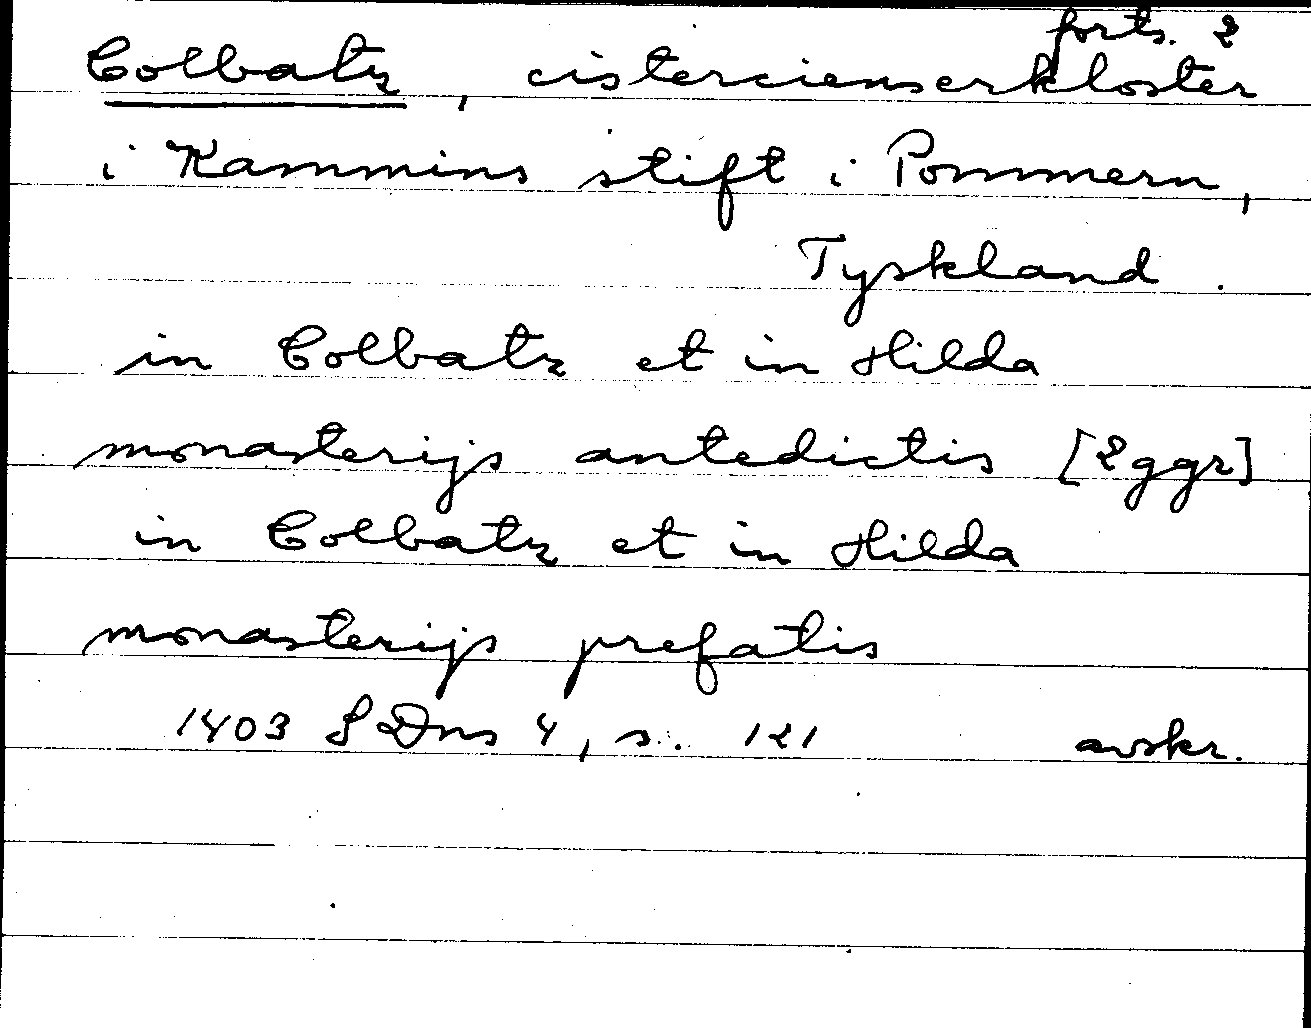 forts. 2
Colbatz, cistercienserkloster
i Kammins stift i Pommern,
Tyskland.
in Colbatz et in Hilda
monasterijs antedictis [2ggr]
in Colbatz et in Hilda
monasterijs prefatis
1403 SDns 4, s. 121 avskr.